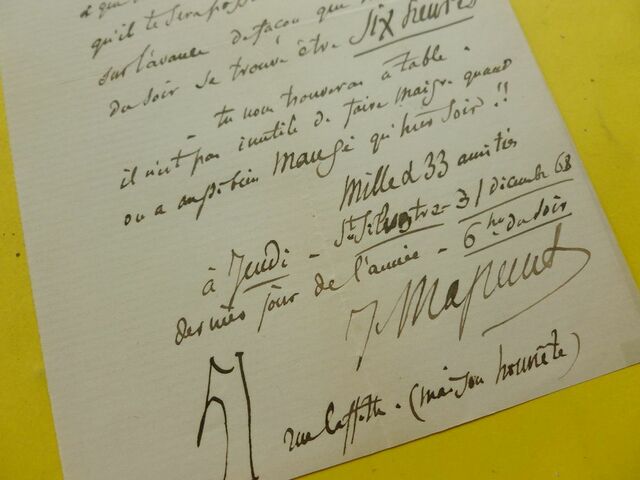 à que
qu'il te sera poss
sur l'avance de façon que
du soir se trouve être six heures
tu nous trouveras à table.
il n'est pas inutile de faire maigre quand
on a aussi bien mangé qu'hier soir !!
Mille & 33 amitiés
à Jeudi - St. Silvestre - 31 décembre 68
dernier jour de l'année - 6 hes du soir
J. Massenet
51
rue Laffitte. (maison honnête)